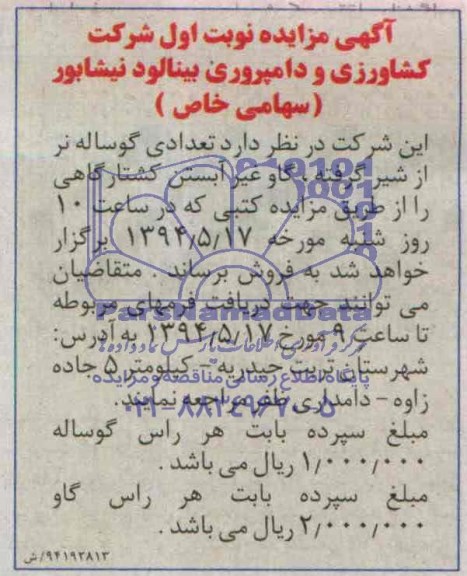 آگهی مزایده نوبت اول شرکت
کشاورزی و دامپروری بینالود نیشابور
( سهامی خاص )
این شرکت در نظر دارد تعدادی گوساله نر
از شیر گرفته ، گاو غیر آبستن کشتارگاهی
را از طریق مزایده کتبی که در ساعت ۱۰
روز شنبه مورخه ۱۳۹۴/۵/۱۷ برگزار
خواهد شد به فروش برساند . متقاضیان
می توانند جهت دریافت فرمهای مربوطه
تا ساعت ۹ مورخ ۱۳۹۴/۵/۱۷ به آدرس:
شهرستان تربت حیدریه – کیلومتر ۵ جاده
زاوه – دامداری ظفر مراجعه نمایند.
مبلغ سپرده بابت هر راس گوساله
۱/۰۰۰/۰۰۰ ریال می باشد .
مبلغ سپرده بابت هر راس گاو
۲/۰۰۰/۰۰۰ ریال می باشد .
۹۴۱۹۲۸۱۳/ش
ParsNamadData
پایگاه اطلاع رسانی مناقصه و مزایده